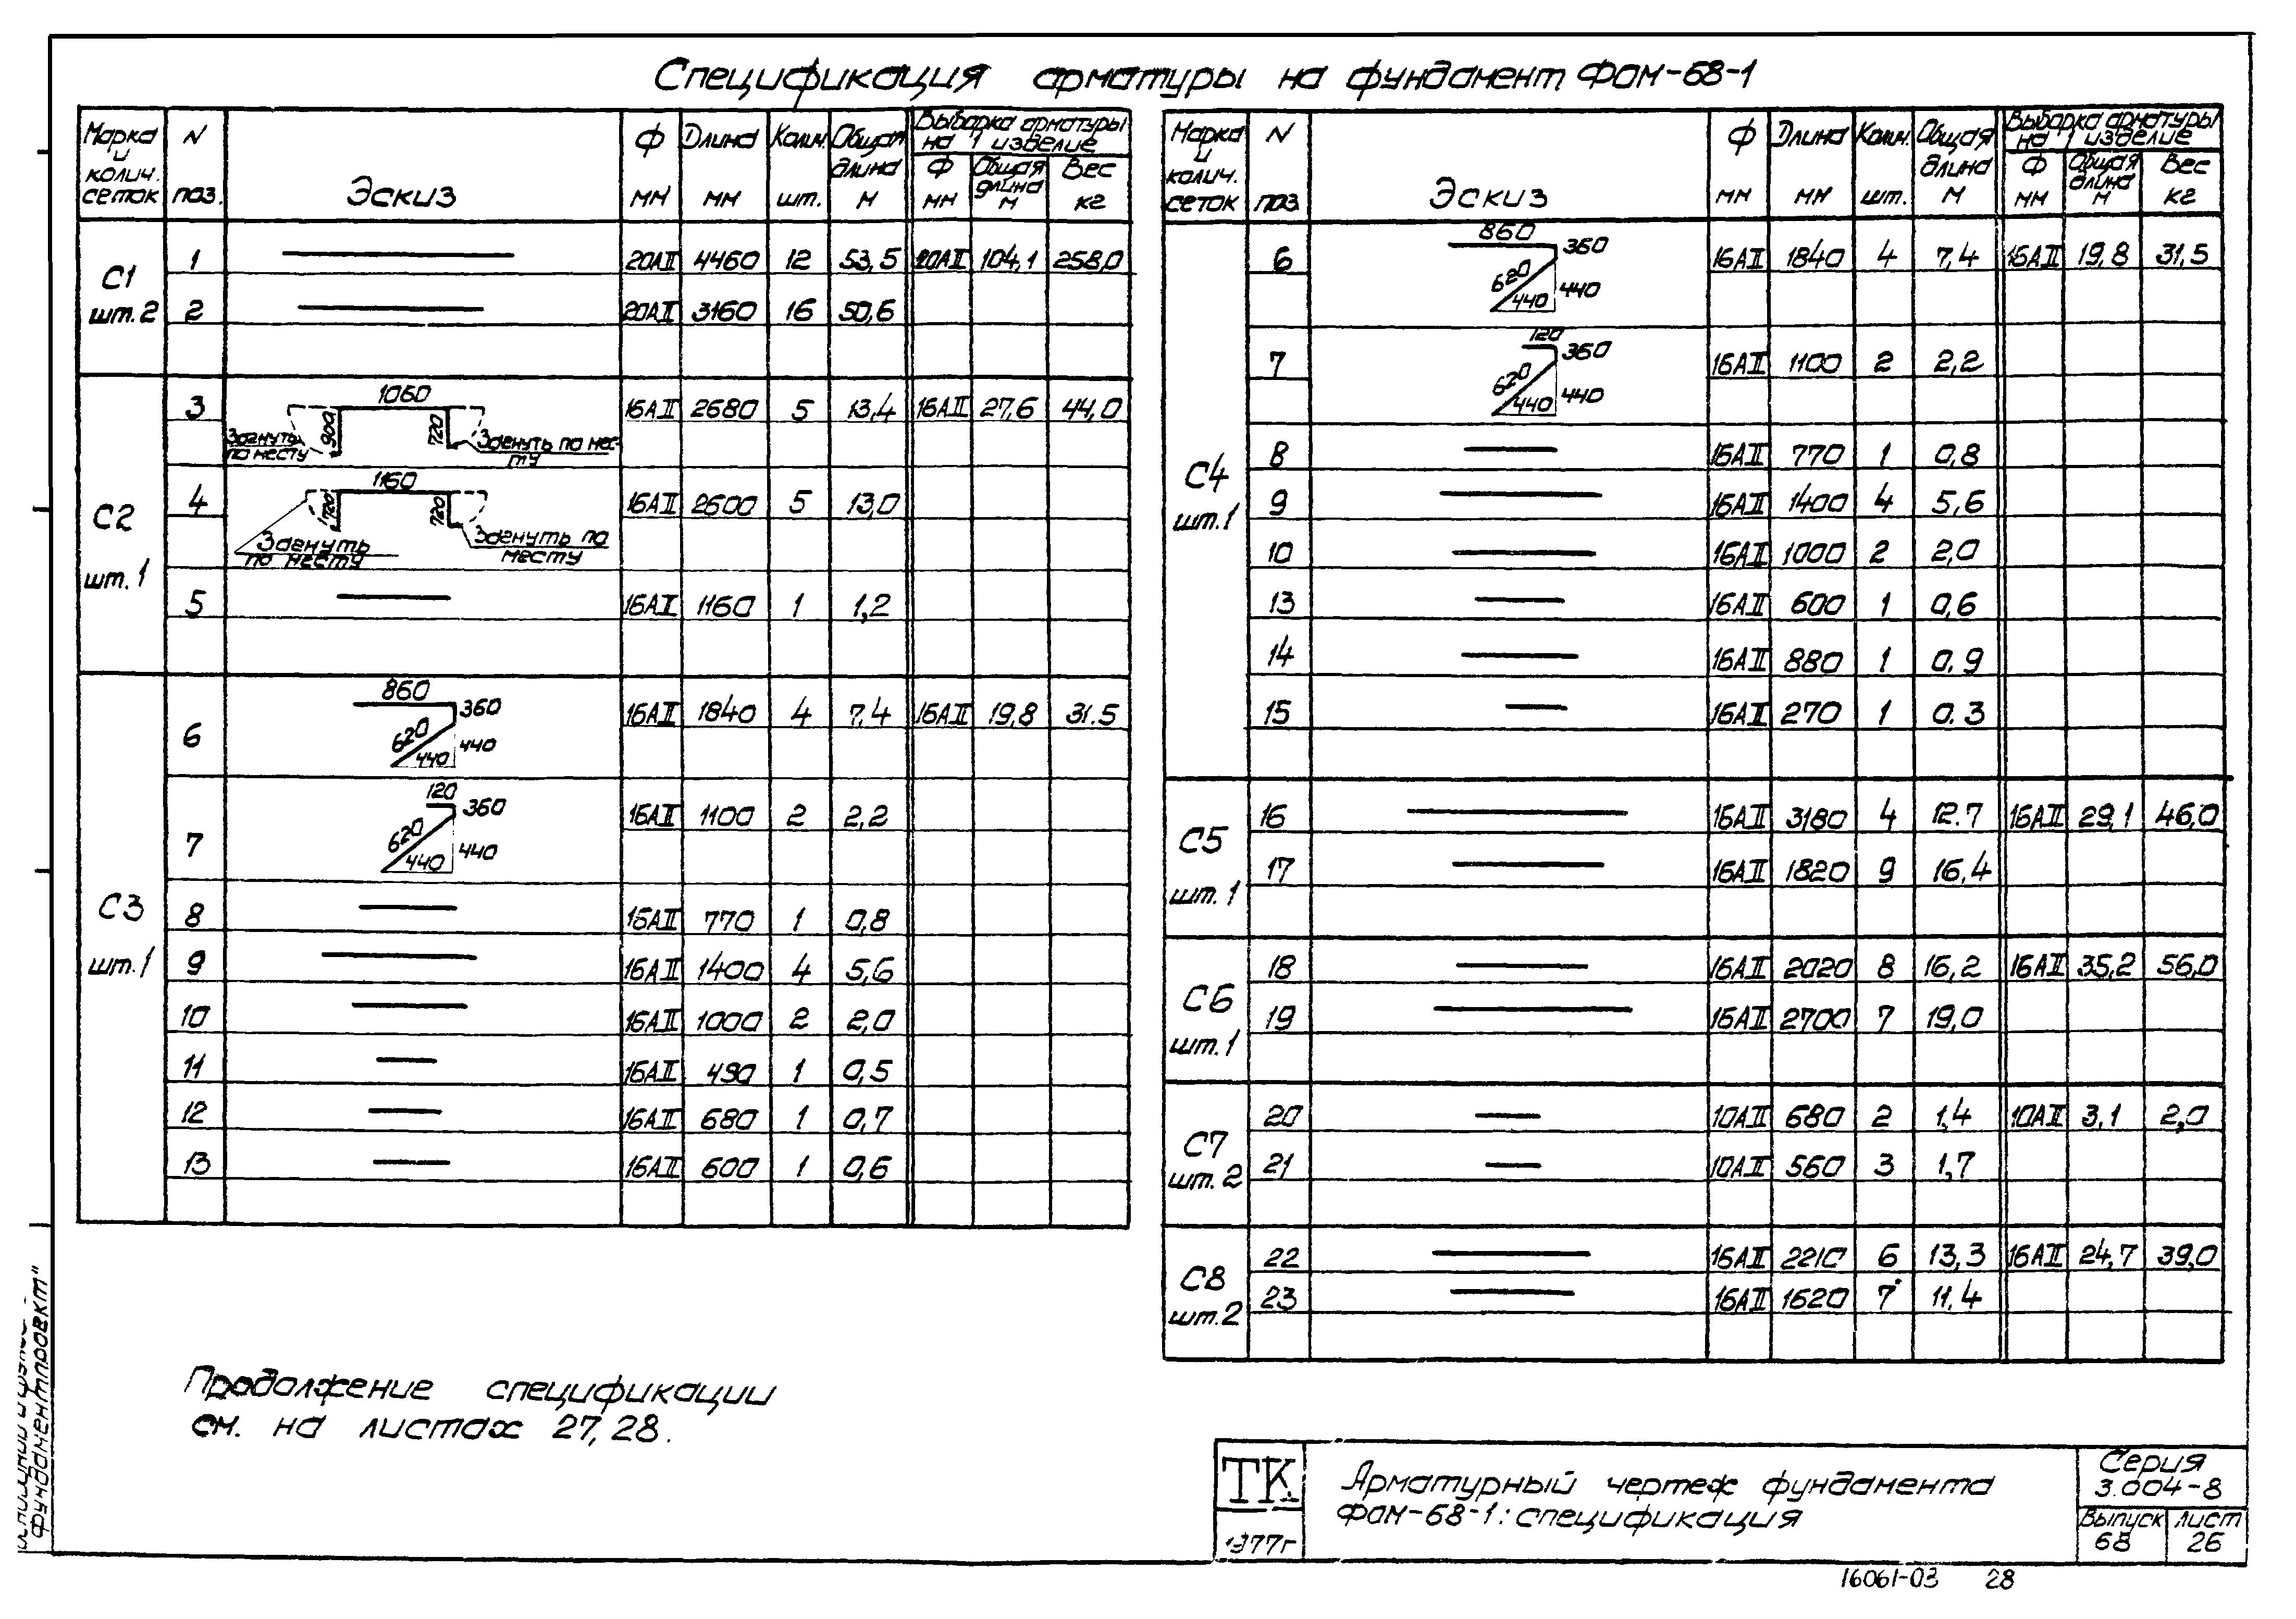 Спецификация арматуры на фундамент Фом-68-1
Марка и колич. сеток N поз. Эскиз Ф мм Длина мм Колич. шт. Общая длина м Выборка арматуры на 1 изделие Ф мм Общая длина м Вес кг
С1 шт.2
1 20АII 4460 12 53,5 20АII 104,1 258,0
2 20АII 3160 16 50,6
С2 шт.1
3 1060 900 720 Загнуть по месту Загнуть по месту 16АII 2680 5 13,4 16АII 27,6 44,0
4 1160 720 720 Загнуть по месту Загнуть по месту 16АII 2600 5 13,0
5 16АII 1160 1 1,2
С3 шт.1
6 860 360 620 440 440 16АII 1840 4 7,4 16АII 19,8 31.5
7 120 360 620 440 440 16АII 1100 2 2,2
8 16АII 770 1 0,8
9 16АII 1400 4 5,6
10 16АII 1000 2 2,0
11 16АII 490 1 0,5
12 16АII 680 1 0,7
13 16АII 600 1 0,6
Марка и колич. сеток N поз Эскиз Ф мм Длина мм Колич. шт. Общая длина м Выборка арматуры на 1 изделие Ф мм Общая длина м Вес кг
С4 шт.1
6 860 360 620 440 440 16АII 1840 4 7,4 16АII 19,8 31,5
7 120 360 620 440 440 16АII 1100 2 2,2
8 16АII 770 1 0,8
9 16АII 1400 4 5,6
10 16АII 1000 2 2,0
13 16АII 600 1 0,6
14 16АII 880 1 0,9
15 16АII 270 1 0.3
С5 шт.1
16 16АII 3180 4 12.7 16АII 29,1 46,0
17 16АII 1820 9 16,4
С6 шт.1
18 16АII 2020 8 16,2 16АII 35,2 56,0
19 16АII 2700 7 19,0
С7 шт.2
20 10АII 680 2 1,4 10АII 3,1 2,0
21 10АII 560 3 1,7
С8 шт.2
22 16АII 2210 6 13,3 16АII 24,7 39,0
23 16АII 1620 7 11,4
Продолжение спецификации
см. на листах 27,28.
фундаментпроект"
ТК
1977г
Арматурный чертеж фундамента
Фом-68-1: спецификация
Серия
3.004-8
Выпуск лист
68 26
16061-03 28